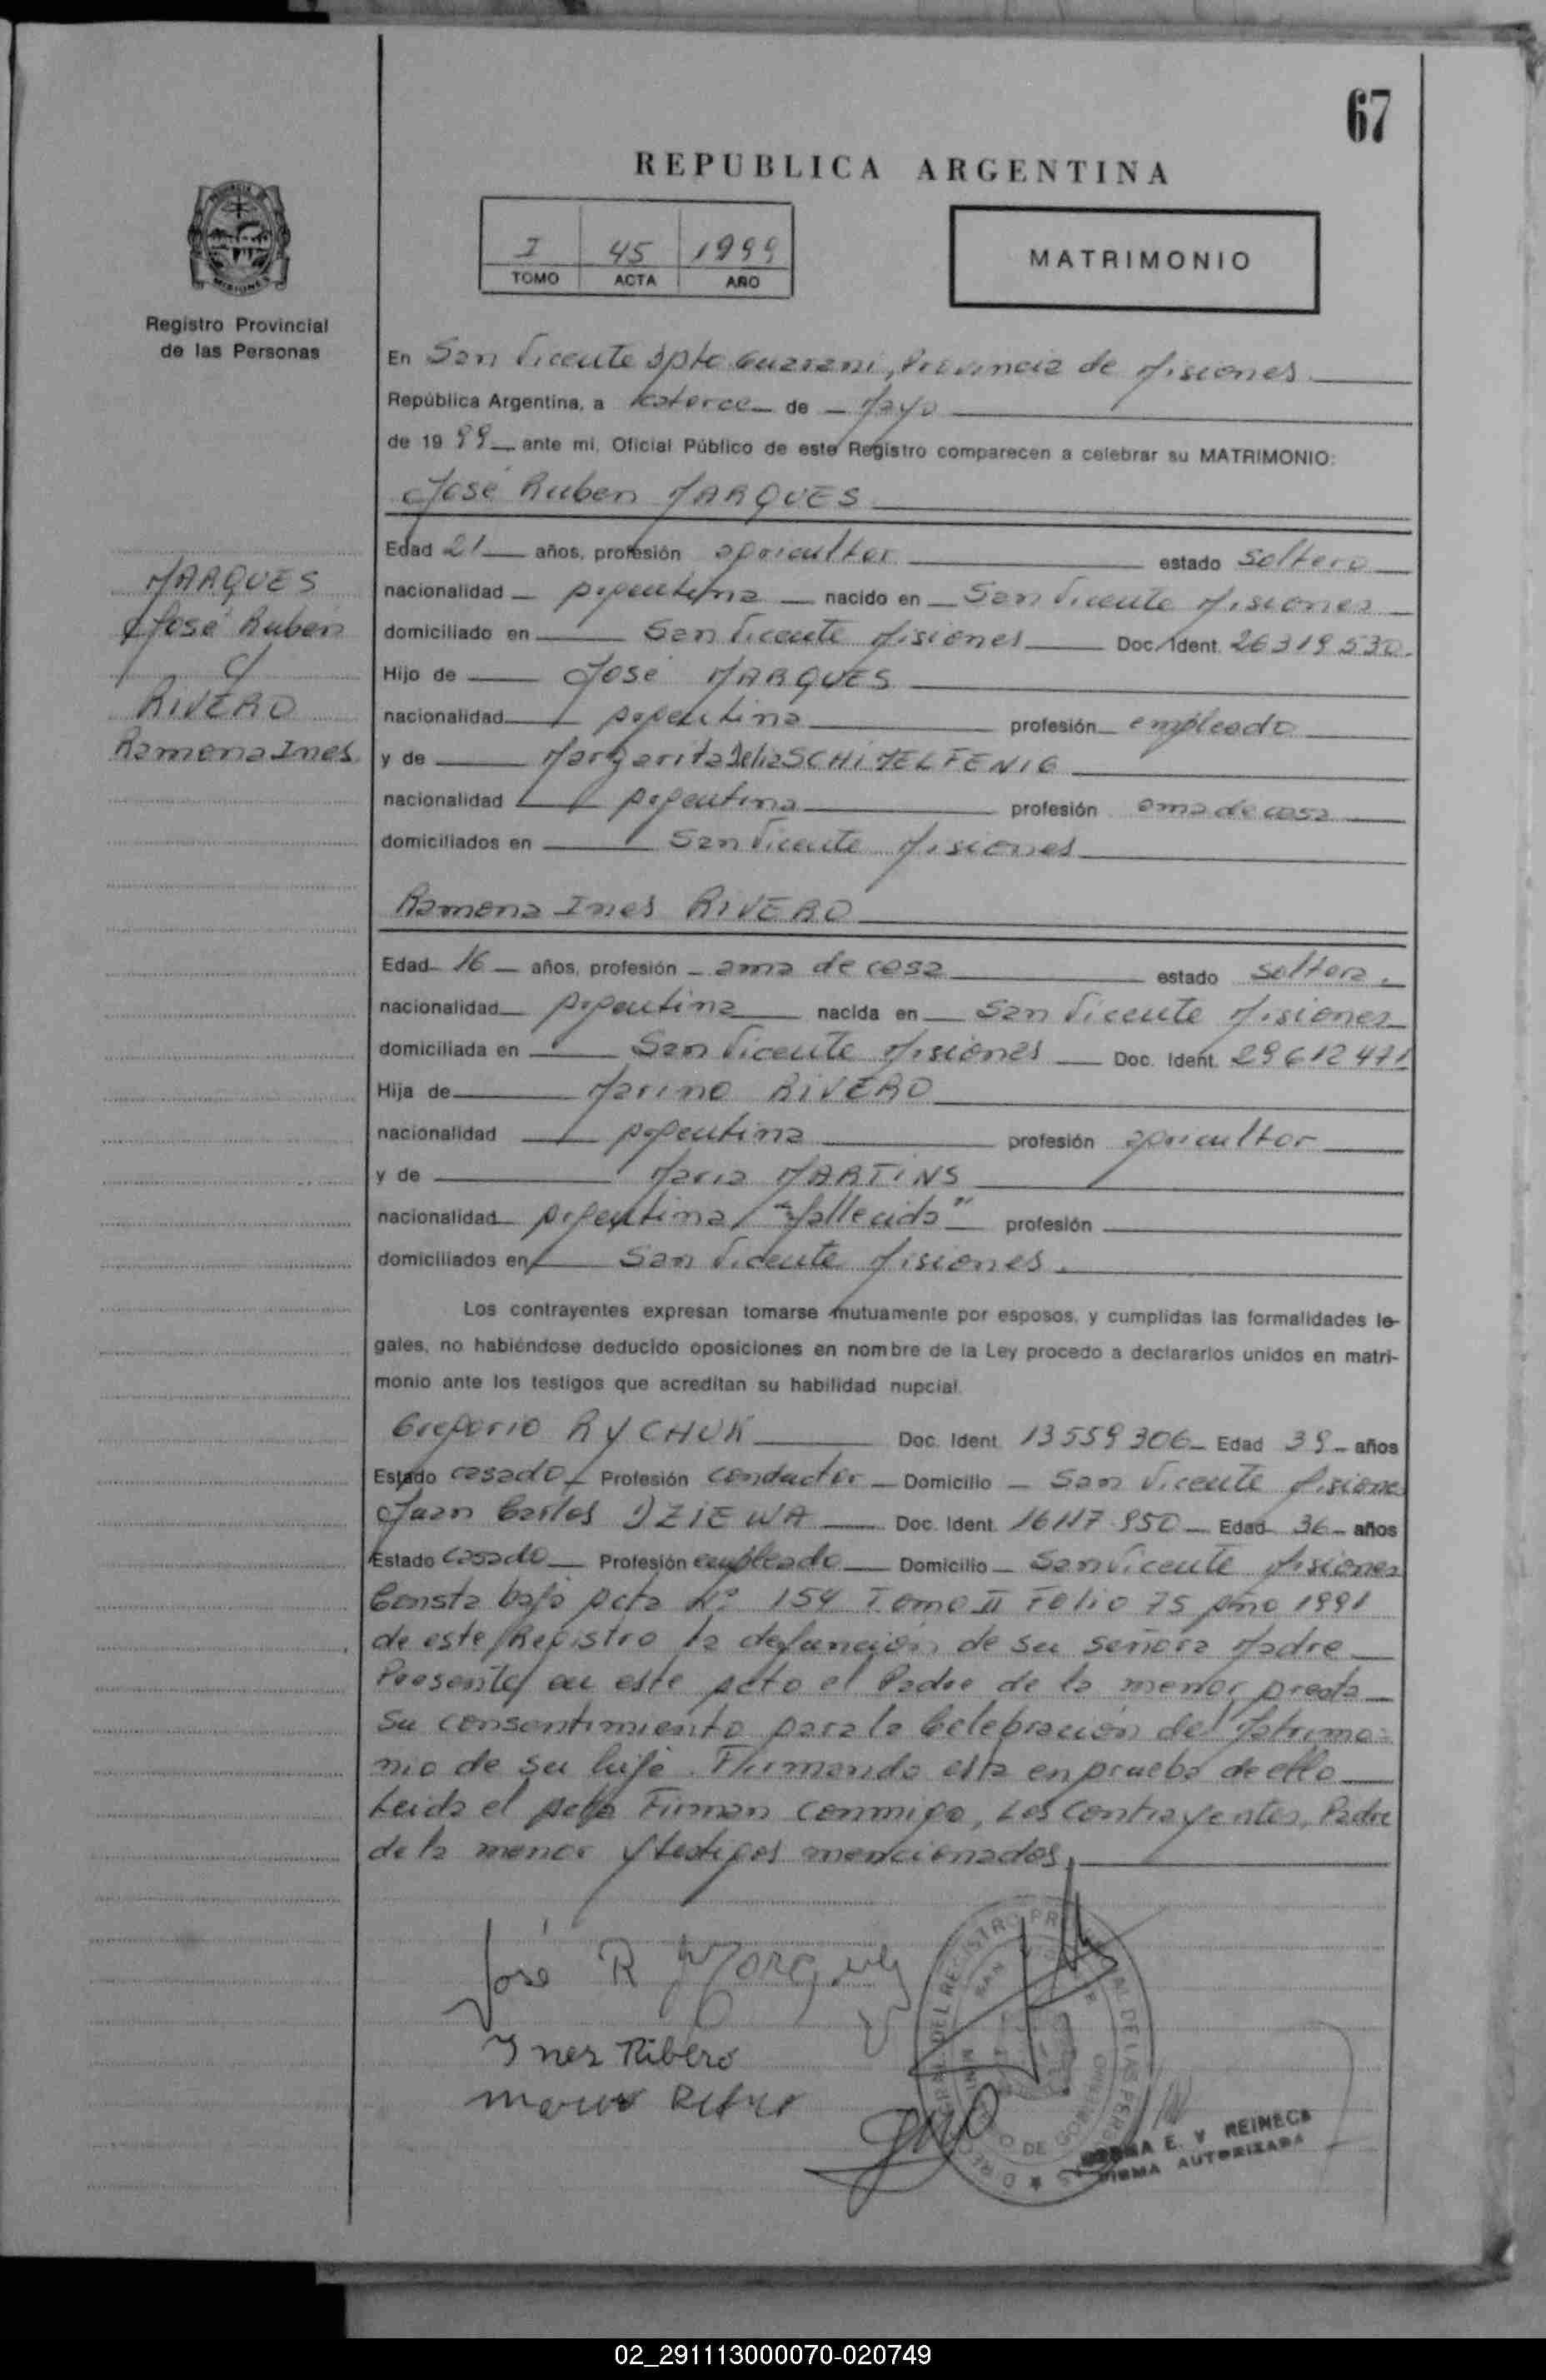 67
REPUBLICA ARGENTINA
I 45 1999
TOMO ACTA AÑO
MATRIMONIO
MISIONES
Registro Provincial
de las Personas
En San Vicente Dpto Guarani, Provincia de Misiones
República Argentina, a catorce de Mayo
de 1999 ante mi, Oficial Público de este Registro comparecen a celebrar su MATRIMONIO:
José Ruben MARQUES
Edad 21 años, profesión agricultor estado soltero
nacionalidad Argentina nacido en San Vicente Misiones
domiciliado en San Vicente Misiones Doc. Ident. 26319530.
Hijo de José MARQUES
nacionalidad Argentina profesión empleado
y de Margarita Delia SCHIMELFENIG
nacionalidad Argentina profesión ama de casa
domiciliados en San Vicente Misiones
MARQUES
José Ruben
c/
RIVERO
Ramona Ines
Ramona Ines RIVERO
Edad 16 años, profesión ama de casa estado soltera.
nacionalidad Argentina nacida en San Vicente Misiones
domiciliada en San Vicente Misiones Doc. Ident. 29612471
Hija de Marino RIVERO
nacionalidad Argentina profesión agricultor
y de Maria MARTINS
nacionalidad Argentina "fallecida" profesión
domiciliados en San Vicente Misiones.
Los contrayentes expresan tomarse mutuamente por esposos, y cumplidas las formalidades le-
gales, no habiéndose deducido oposiciones en nombre de la Ley procedo a declararlos unidos en matri-
monio ante los testigos que acreditan su habilidad nupcial.
Gregorio RYCHUK Doc. Ident. 13559306 Edad 39 años
Estado casado Profesión conductor Domicilio San Vicente Misiones
Juan Carlos DZIEWA Doc. Ident. 16117.950 Edad 36 años
Estado casado Profesión empleado Domicilio San Vicente Misiones
Consta bajo Acta Nº 154 Tomo II Folio 75 Año 1991
de este Registro la defunción de su señora Madre
Presente en este acto el Padre de la menor presta
su consentimiento para la Celebración del Matrimo-
nio de su hija. Firmando esta en prueba de ello
Leida el Acta Firman conmigo, Los Contrayentes, Padre
de la menor y testigos mencionados.
José R Marques
Ines Ribero
E. V REINECK
FIRMA AUTORIZADA
02_291113000070-020749